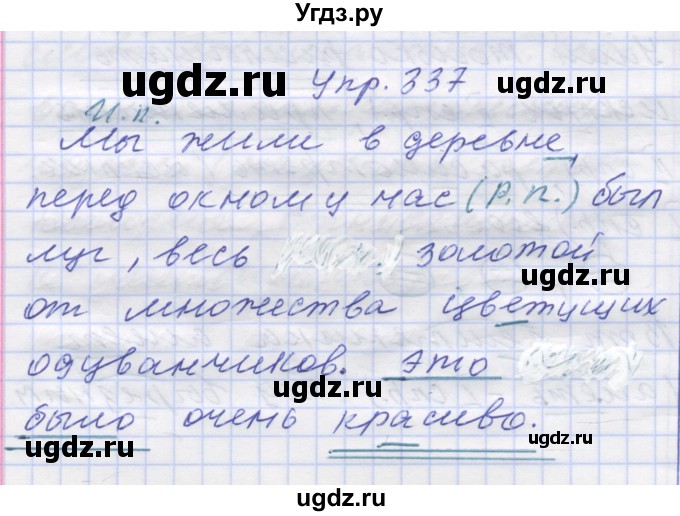 Угдз.ру
ugdz.ru ugdz.ru
Упр. 337
И.п.
Мы жили в деревне,
ugdz.ru
перед окном у нас (Р.п.) был
луг, весь золотой
ugdz.ru
от множества цветущих
одуванчиков. Это
ugdz.ru
было очень красиво.
ugdz.ru ugdz.ru
ugdz.ru